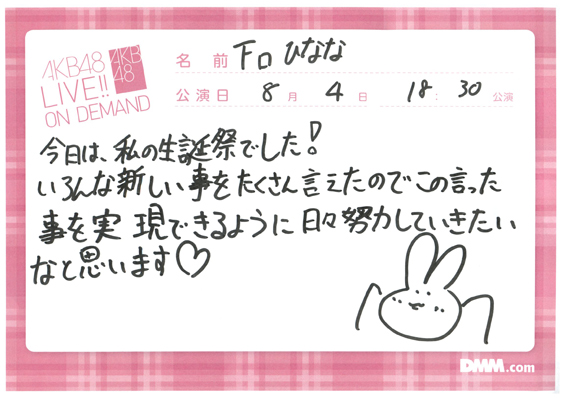 AKB48
LIVE!!
ON DEMAND
AKB
48
名 前 下口ひなな
公演日 8月 4日 18:30公演
今日は、私の生誕祭でした!
いろんな新しい事をたくさん言えたのでこの言った
事を実現できるように日々努力していきたい
なと思います♡
DMM.com